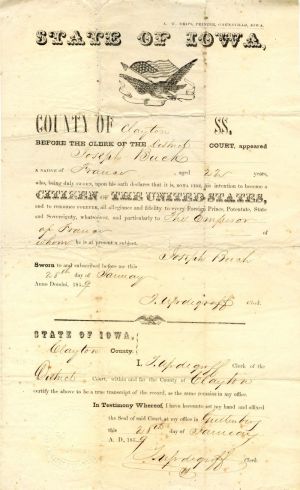 STATE OF IOWA,
COUNTY OF Clayton SS.
BEFORE THE CLERK OF THE District COURT, appeared
Joseph Buck
A NATIVE OF France aged 22 years,
who, being duly sworn, upon his oath declares that it is, BONA FIDE, his intention to become a
CITIZEN OF THE UNITED STATES,
and to renounce forever, all allegiance and fidelity to every Foreign Prince, Potentate, State
and Sovereignty, whatsoever, and particularly to The Emperor
of France of
whom he is at present a subject.
Joseph Buck
Sworn to and subscribed before me this
28th day of January
Anno Domini, 1859
Updegraff Clerk.
STATE OF IOWA,
Clayton County.
I, Updegraff Clerk of the
District Court, within and for the County of Clayton
certify the above to be a true transcript of the record, as the same remains in my office.
In Testimony Whereof, I have hereunto set my hand and affixed
the Seal of said Court, at my office in Guttenberg
this 28th day of January
A. D., 1859
Updegraff Clerk